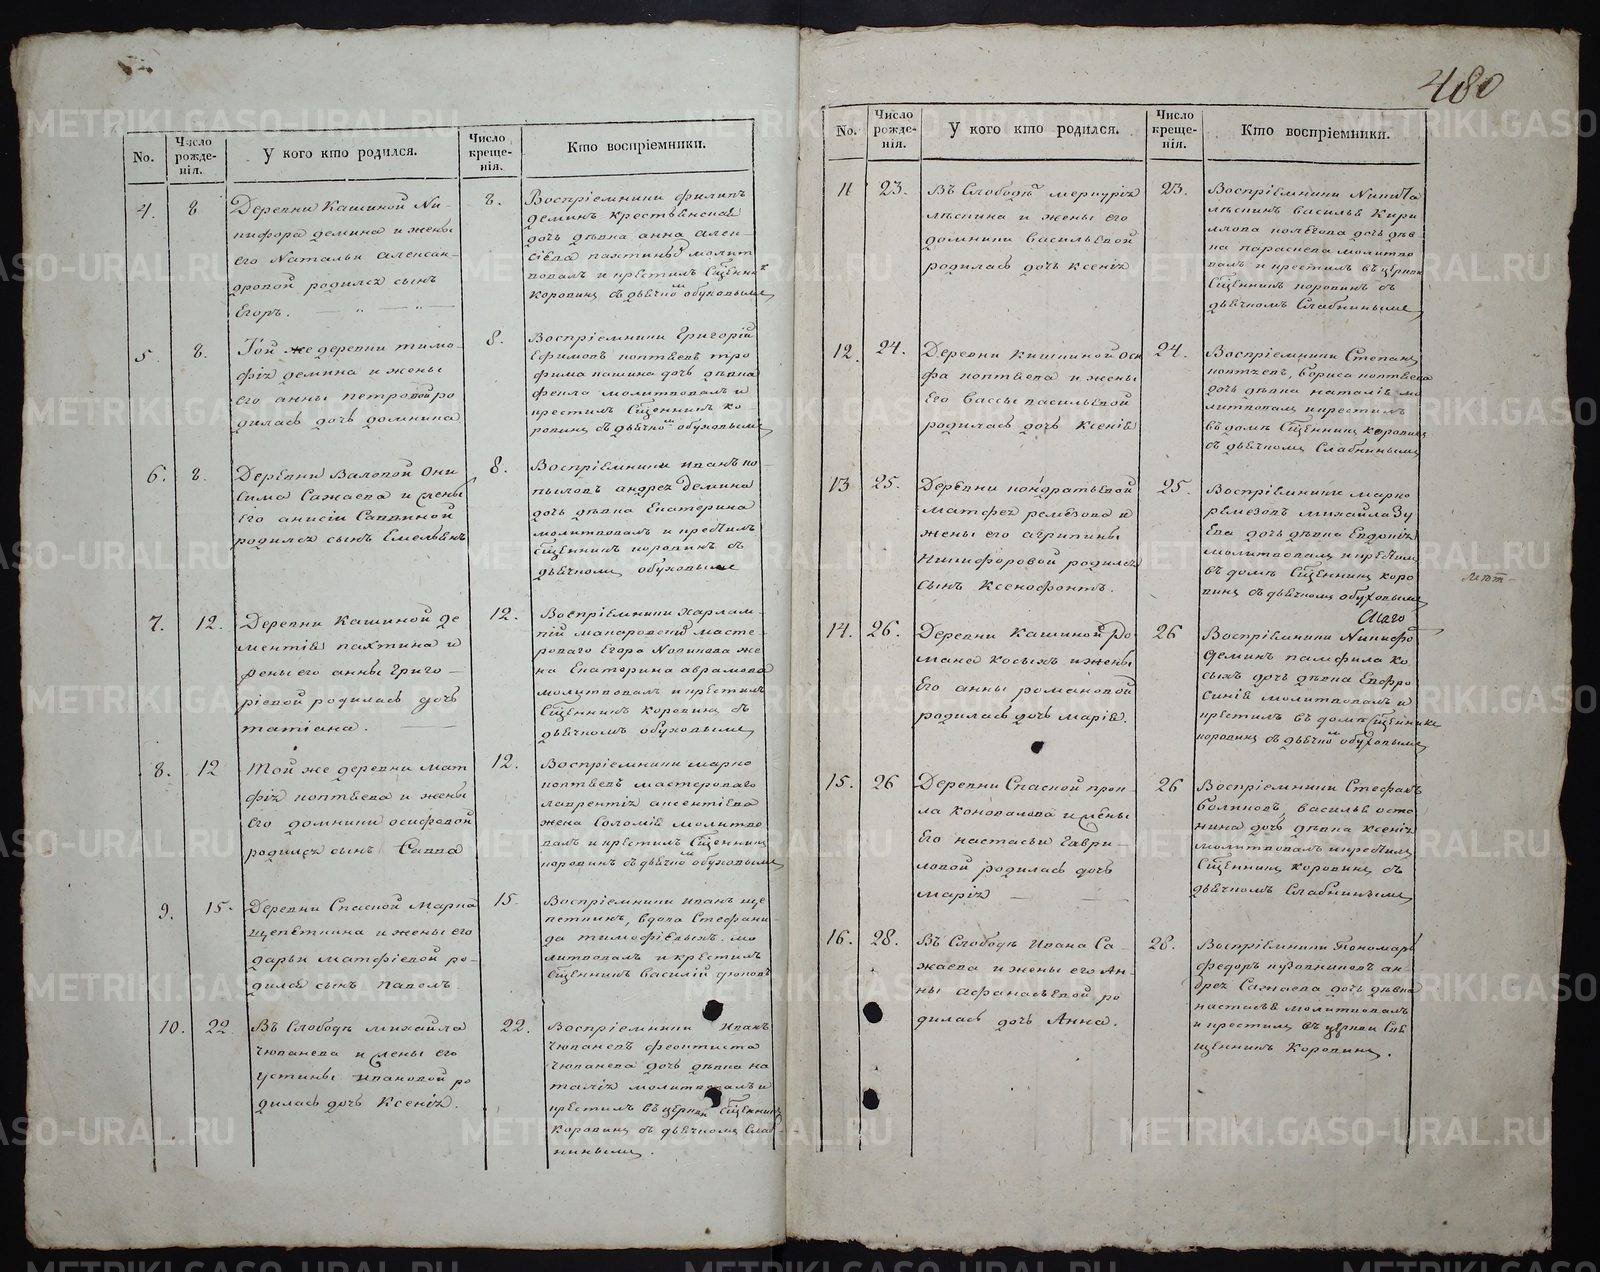 480
No.
Число рожде-нія.
У кого кто родился.
Число креще-нія.
Кто воспріемники.
4.
8
Деревни Кашиной Ни-
кифора демина и жены
его Натальи алексан-
дровой родился сынъ
Егоръ.
8.
Воспріемники филипъ
деминъ крестьянская
дочь дѣвка анна алек-
сіева пахтины молит
вовалъ и крестилъ Сщенникъ
коровинъ съ дьячкомъ обуховымъ
5
8.
Той же деревни тимо-
фія демина и жены
его анны петровой ро
дилась дочь домника
8.
Воспріемники Григорій
Ефимовъ коптяевъ тро
фима кашина дочь дѣвка
фекла молитвовалъ и
крестилъ Сщенникъ ко-
ровинъ съ дьячкомъ обуховымъ
6.
8.
Деревни Валовой Они
сима Сажаева и жены
его анисіи Саввиной
родился сынъ Емельянъ
8.
Воспріемники иванъ ко-
пыловъ андрея демина
дочь дѣвка Екатерина
молитвовалъ и крестилъ
Сщенникъ коровинъ съ
дьячкомъ обуховымъ
7.
12.
Деревни Кашиной де
ментія пахтина и
жены его анны Григо-
ріевой родилась дочь
татіана.
12.
Воспріемники Харлам-
пій макаровскій масте-
роваго Егора Новикова же
на Екатерина аврамова
молитвовалъ и крестилъ
Сщенникъ Коровинъ съ
дьячкомъ обуховымъ
8.
12
Той же деревни мат
фія коптяева и жены
его домники осифовой
родился сынъ Савва
12.
Воспріемники марко
коптяевъ мастероваго
лаврентія аксентіева
жена Соломія молитво
валъ и крестилъ Сщенникъ
коровинъ съ дьячкомъ обуховымъ
9.
15.
Деревни Спаской Марка
щепеткина и жены его
дарьи матфіевой ро-
дился сынъ павелъ
15
Воспріемники иванъ ще
петкинъ, вдова Стефани-
да тимофіевыхъ. мо
литвовалъ и крестилъ
Сщенникъ василій
10.
22.
Въ Слободѣ михаила
чюпанева и жены его
устиньи ивановой ро
дилась дочь Ксенія.
22.
Воспріемники Иванъ
чюпаневъ феоктиста
чюпанева дочь дѣвка на
талія молитвовалъ и
крестилъ въ церкви Сщенникъ
коровинъ съ дьячкомъ Слаб
ниннымъ.
No.
Число рожде-нія.
У кого кто родился.
Число креще-нія.
Кто воспріемники.
11
23.
Въ Слободѣ меркурія
мѣлкина и жены его
домники васильевой
родилась дочь Ксенія
23.
Воспріемники Никита
василья Кири
ллова дочь дѣв-
ка параскева молитво
валъ и крестилъ въ церкви
Сщенникъ коровинъ съ
дьячкомъ Слабнинымъ
12.
24.
Деревни Кашиной оси
фа коптяева и жены
его вассы васильевой
родилась дочь Ксенія
24.
Воспріемники Степанъ
коптяевъ, бориса коптяева
дочь дѣвка наталія мо
литвовалъ и крестилъ
въ домѣ Сщенникъ коровинъ
съ дьячкомъ Слабнинымъ
13
25.
Деревни кондратьевой
матфея ремезова и
жены его агрипины
Никифоровой родился
сынъ Ксенофонтъ.
25.
Воспріемники марко
ремезовъ михайла Зу
ева дочь дѣвка Евдокія
молитвовалъ и крестилъ
въ домѣ Сщенникъ коро
винъ съ дьячкомъ обуховымъ
14.
26.
Деревни Кашиной Ро
мана Косыхъ и жены
его анны романовой
родилась дочь марія.
26
Воспріемники Никифо
деминъ памфила ко
сыхъ дочь дѣвка Евфро
синія молитвовалъ и
крестилъ въ домѣ Сщенникъ
коровинъ съ дьячкомъ обуховымъ
15.
26
Деревни Спаской прок-
ла коновалова и жены
Его настасьи Гаври-
ловой родилась дочь
марія
26
Воспріемники Стефанъ
василья оста
нина дочь дѣвка ксенія
молитвовалъ и крестилъ
Сщенникъ Коровинъ съ
дьячкомъ Слабнинымъ
16.
28.
Въ Слободѣ Ивана Са-
жаева и жены его Ан-
ны афанасьевой ро
дилась дочь Анна.
28.
Воспріемники Пономарь
федоръ кузовниковъ ан-
дрея Сажаева дочь дѣвка
настасья молитвовалъ
и крестилъ въ церкви Свя
щенникъ Коровинъ.
METRIKI.GASO-URAL.RU